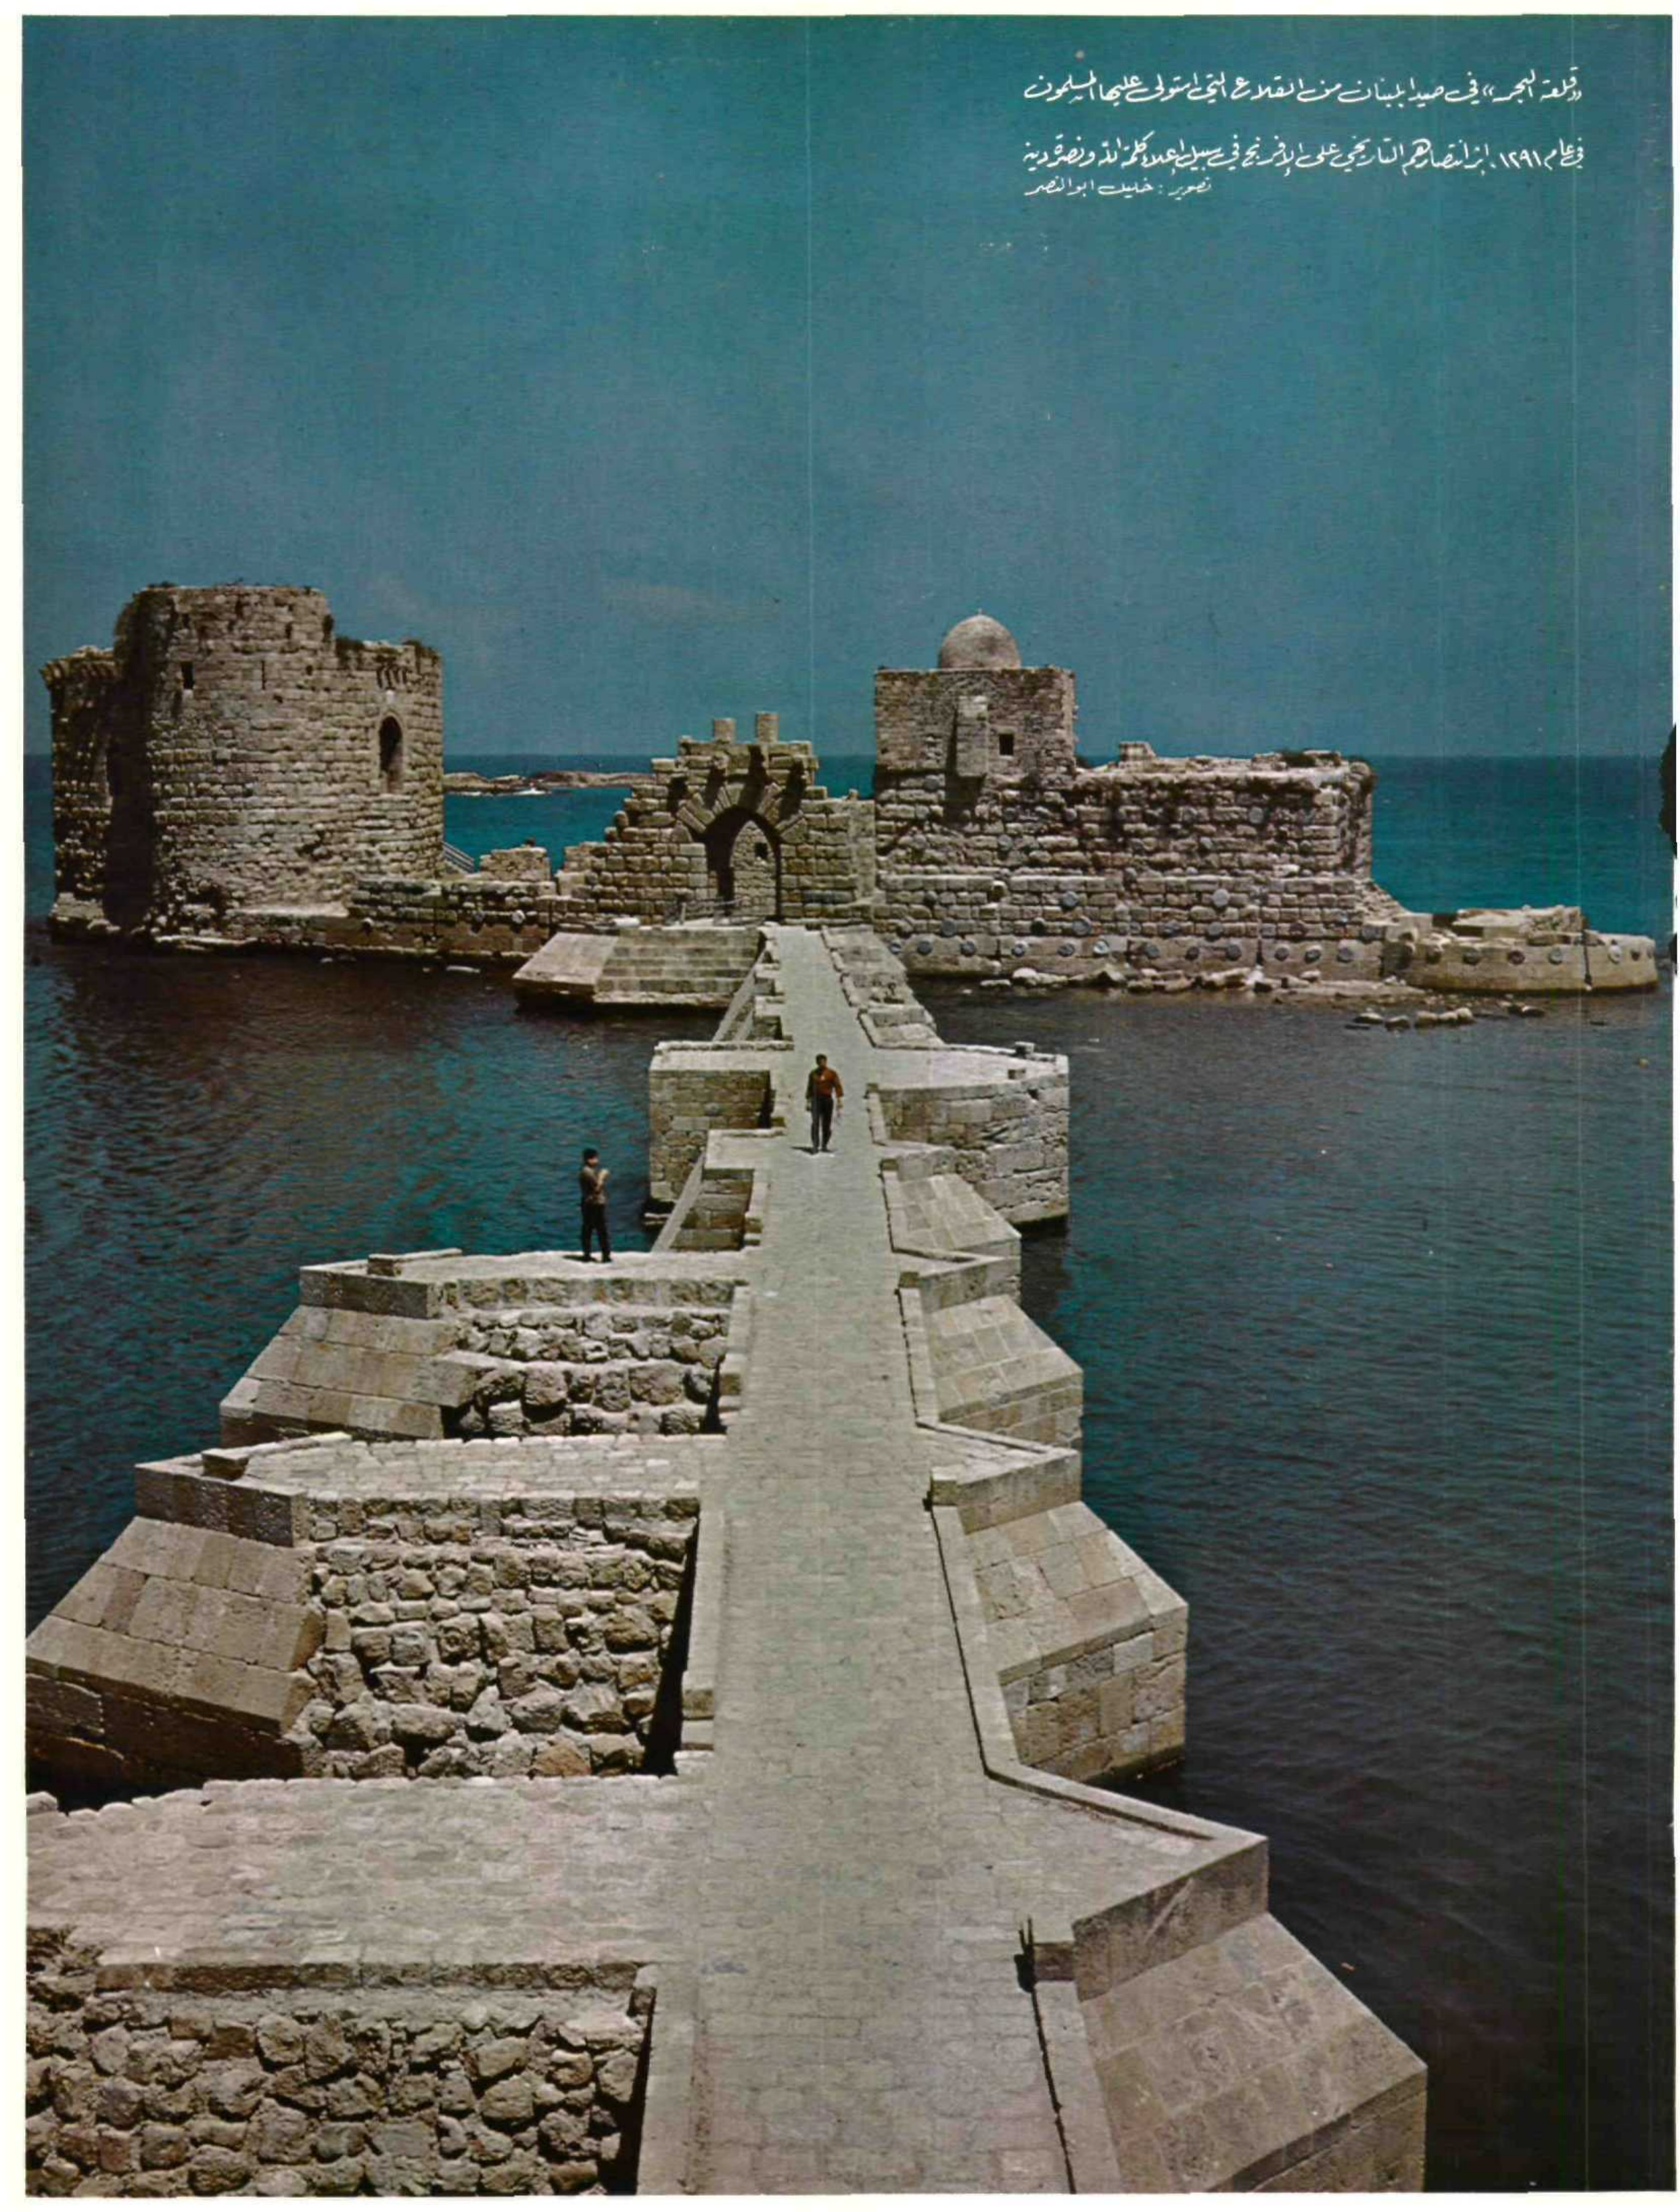 «قلعة البحر» في صيدا بلبنان من القلاع التي استولى عليها المسلمون
في عام ١٢٩١م، إثر انتصارهم التاريخي على الإفرنج في سبيل إعلاء كلمة الله ونصرة دينه
تصوير : خليل ابو النصر